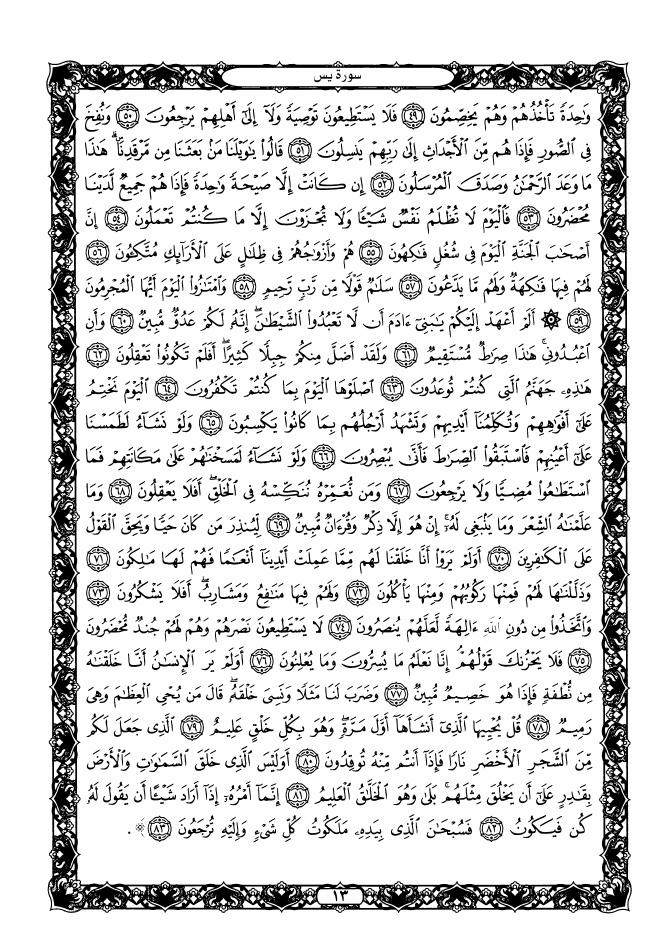 سورة يس
وَٰحِدَةً تَأْخُذُهُمْ وَهُمْ يَخِصِّمُونَ ٤٩ فَلَا يَسْتَطِيعُونَ تَوْصِيَةً وَلَآ إِلَىٰٓ أَهْلِهِمْ يَرْجِعُونَ ٥٠ وَنُفِخَ
فِى ٱلصُّورِ فَإِذَا هُم مِّنَ ٱلْأَجْدَاثِ إِلَىٰ رَبِّهِمْ يَنسِلُونَ ٥١ قَالُوا۟ يَٰوَيْلَنَا مَنۢ بَعَثَنَا مِن مَّرْقَدِنَا ۗ هَٰذَا
مَا وَعَدَ ٱلرَّحْمَٰنُ وَصَدَقَ ٱلْمُرْسَلُونَ ٥٢ إِن كَانَتْ إِلَّا صَيْحَةً وَٰحِدَةً فَإِذَا هُمْ جَمِيعٌ لَّدَيْنَا
مُحْضَرُونَ ٥٣ فَٱلْيَوْمَ لَا تُظْلَمُ نَفْسٌ شَيْـًٔا وَلَا تُجْزَوْنَ إِلَّا مَا كُنتُمْ تَعْمَلُونَ ٥٤ إِنَّ
أَصْحَٰبَ ٱلْجَنَّةِ ٱلْيَوْمَ فِى شُغُلٍ فَٰكِهُونَ ٥٥ هُمْ وَأَزْوَٰجُهُمْ فِى ظِلَٰلٍ عَلَى ٱلْأَرَآئِكِ مُتَّكِـُٔونَ ٥٦
لَهُمْ فِيهَا فَٰكِهَةٌ وَلَهُم مَّا يَدَّعُونَ ٥٧ سَلَٰمٌ قَوْلًا مِّن رَّبٍّ رَّحِيمٍ ٥٨ وَٱمْتَٰزُوا۟ ٱلْيَوْمَ أَيُّهَا ٱلْمُجْرِمُونَ
٥٩ ۞ أَلَمْ أَعْهَدْ إِلَيْكُمْ يَٰبَنِىٓ ءَادَمَ أَن لَّا تَعْبُدُوا۟ ٱلشَّيْطَٰنَ ۖ إِنَّهُۥ لَكُمْ عَدُوٌّ مُّبِينٌ ٦٠ وَأَنِ
ٱعْبُدُونِى ۚ هَٰذَا صِرَٰطٌ مُّسْتَقِيمٌ ٦١ وَلَقَدْ أَضَلَّ مِنكُمْ جِبِلًّا كَثِيرًا ۖ أَفَلَمْ تَكُونُوا۟ تَعْقِلُونَ ٦٢
هَٰذِهِۦ جَهَنَّمُ ٱلَّتِى كُنتُمْ تُوعَدُونَ ٦٣ ٱصْلَوْهَا ٱلْيَوْمَ بِمَا كُنتُمْ تَكْفُرُونَ ٦٤ ٱلْيَوْمَ نَخْتِمُ
عَلَىٰٓ أَفْوَٰهِهِمْ وَتُكَلِّمُنَآ أَيْدِيهِمْ وَتَشْهَدُ أَرْجُلُهُم بِمَا كَانُوا۟ يَكْسِبُونَ ٦٥ وَلَوْ نَشَآءُ لَطَمَسْنَا
عَلَىٰٓ أَعْيُنِهِمْ فَٱسْتَبَقُوا۟ ٱلصِّرَٰطَ فَأَنَّىٰ يُبْصِرُونَ ٦٦ وَلَوْ نَشَآءُ لَمَسَخْنَٰهُمْ عَلَىٰ مَكَانَتِهِمْ فَمَا
ٱسْتَطَٰعُوا۟ مُضِيًّا وَلَا يَرْجِعُونَ ٦٧ وَمَن نُّعَمِّرْهُ نُنَكِّسْهُ فِى ٱلْخَلْقِ ۖ أَفَلَا يَعْقِلُونَ ٦٨ وَمَا
عَلَّمْنَٰهُ ٱلشِّعْرَ وَمَا يَنۢبَغِى لَهُۥٓ ۚ إِنْ هُوَ إِلَّا ذِكْرٌ وَقُرْءَانٌ مُّبِينٌ ٦٩ لِّيُنذِرَ مَن كَانَ حَيًّا وَيَحِقَّ ٱلْقَوْلُ
عَلَى ٱلْكَٰفِرِينَ ٧٠ أَوَلَمْ يَرَوْا۟ أَنَّا خَلَقْنَا لَهُم مِّمَّا عَمِلَتْ أَيْدِينَآ أَنْعَٰمًا فَهُمْ لَهَا مَٰلِكُونَ ٧١
وَذَلَّلْنَٰهَا لَهُمْ فَمِنْهَا رَكُوبُهُمْ وَمِنْهَا يَأْكُلُونَ ٧٢ وَلَهُمْ فِيهَا مَنَٰفِعُ وَمَشَارِبُ ۖ أَفَلَا يَشْكُرُونَ ٧٣
وَٱتَّخَذُوا۟ مِن دُونِ ٱللَّهِ ءَالِهَةً لَّعَلَّهُمْ يُنصَرُونَ ٧٤ لَا يَسْتَطِيعُونَ نَصْرَهُمْ وَهُمْ لَهُمْ جُندٌ مُّحْضَرُونَ
٧٥ فَلَا يَحْزُنكَ قَوْلُهُمْ ۘ إِنَّا نَعْلَمُ مَا يُسِرُّونَ وَمَا يُعْلِنُونَ ٧٦ أَوَلَمْ يَرَ ٱلْإِنسَٰنُ أَنَّا خَلَقْنَٰهُ
مِن نُّطْفَةٍ فَإِذَا هُوَ خَصِيمٌ مُّبِينٌ ٧٧ وَضَرَبَ لَنَا مَثَلًا وَنَسِىَ خَلْقَهُۥ ۖ قَالَ مَن يُحْىِ ٱلْعِظَٰمَ وَهِىَ
رَمِيمٌ ٧٨ قُلْ يُحْيِيهَا ٱلَّذِىٓ أَنشَأَهَآ أَوَّلَ مَرَّةٍ ۖ وَهُوَ بِكُلِّ خَلْقٍ عَلِيمٌ ٧٩ ٱلَّذِى جَعَلَ لَكُم
مِّنَ ٱلشَّجَرِ ٱلْأَخْضَرِ نَارًا فَإِذَآ أَنتُم مِّنْهُ تُوقِدُونَ ٨٠ أَوَلَيْسَ ٱلَّذِى خَلَقَ ٱلسَّمَٰوَٰتِ وَٱلْأَرْضَ
بِقَٰدِرٍ عَلَىٰٓ أَن يَخْلُقَ مِثْلَهُم ۚ بَلَىٰ وَهُوَ ٱلْخَلَّٰقُ ٱلْعَلِيمُ ٨١ إِنَّمَآ أَمْرُهُۥٓ إِذَآ أَرَادَ شَيْـًٔا أَن يَقُولَ لَهُۥ
كُن فَيَكُونُ ٨٢ فَسُبْحَٰنَ ٱلَّذِى بِيَدِهِۦ مَلَكُوتُ كُلِّ شَىْءٍ وَإِلَيْهِ تُرْجَعُونَ ٨٣ ﴾ .
١٣